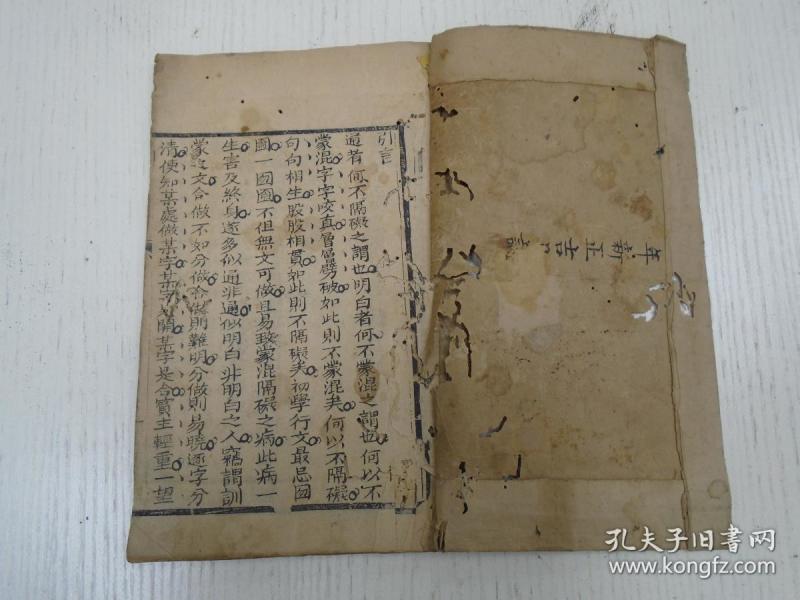 引言
通者何不隔礙之謂也明白者何不蒙混之謂也何以不
蒙混字字咬真層層劈破如此則不蒙混矣何以不隔礙
句句相生股股相貫如此則不隔礙矣初學行文最忌囫
圇一囫圇不但無文可做且易致蒙混隔礙之病此病一
生害及終身遂多似通非通似明白非明白之人竊謂訓
蒙文合做不如分做合做則難明分做則易曉逐字分
清使知某處做某字某字是開某字是合賓主輕重一望
新正吉
年
孔夫子旧书网
www.kongfz.com